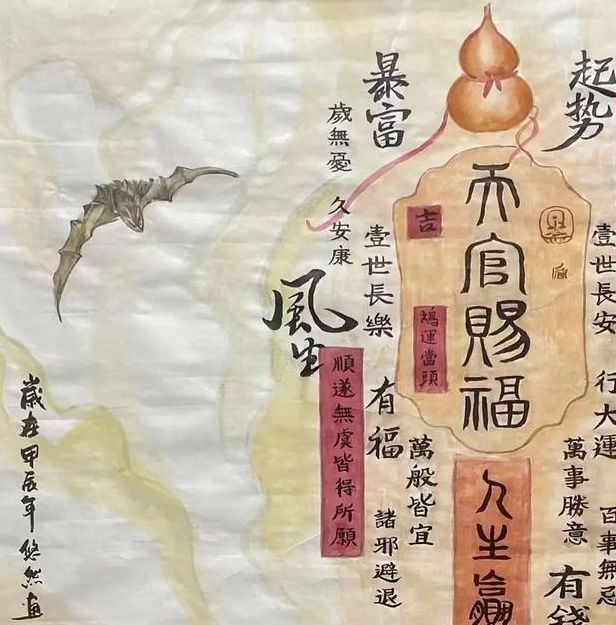 起势
壹世長安
行大運
百事無忌
萬事勝意
有錢
天官賜福
人生贏
吉
鴻運當頭
萬般皆宜
暴富
壹世長樂
有福
諸邪避退
歲無憂
久安康
順遂無虞皆得所願
風生
歲在甲辰年 悠然